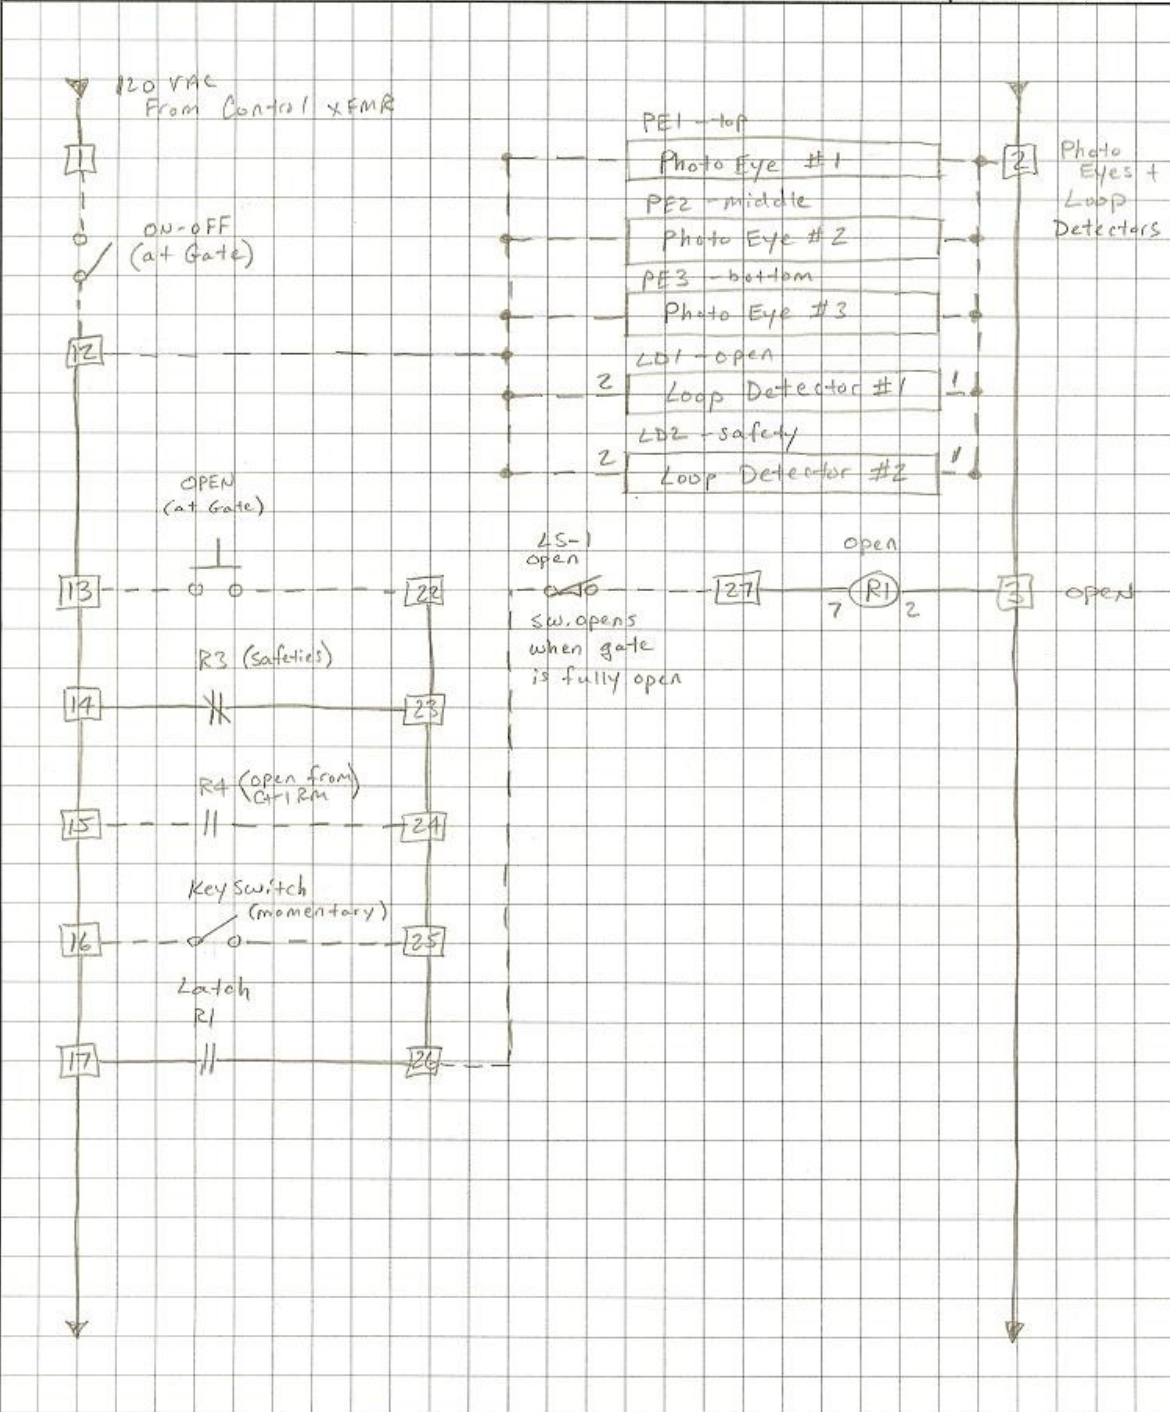 120 VAC
From Control XFMR
1
ON-OFF
(at Gate)
12
PE1 - top
Photo Eye #1
PE2 - middle
Photo Eye #2
PE3 - bottom
Photo Eye #3
LD1 - open
2 Loop Detector #1 1
LD2 - safety
2 Loop Detector #2 1
2
Photo
Eyes +
Loop
Detectors
OPEN
(at Gate)
13
22
LS-1
open
sw. opens
when gate
is fully open
27
7
open
R1
2
3
OPEN
R3 (safeties)
14
23
R4 (open from
Ctrl RM)
15
24
Key Switch
(momentary)
16
25
Latch
R1
17
26